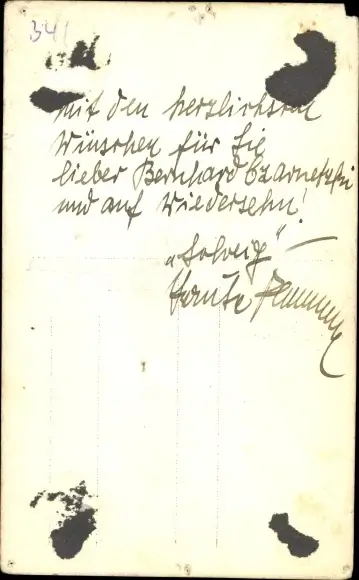 341
mit den herzlichsten
Wünschen für Sie
lieber Bernhard Czarnetzki
und auf Wiedersehn!
„Solveig" —